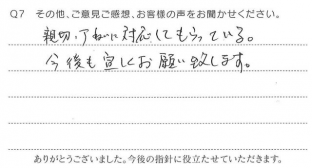 Q7 その他、ご意見ご感想、お客様の声をお聞かせください。
親切、丁ねいに対応してもらっている。
今後も宜しくお願い致します。
ありがとうございました。今後の指針に役立たせていただきます。